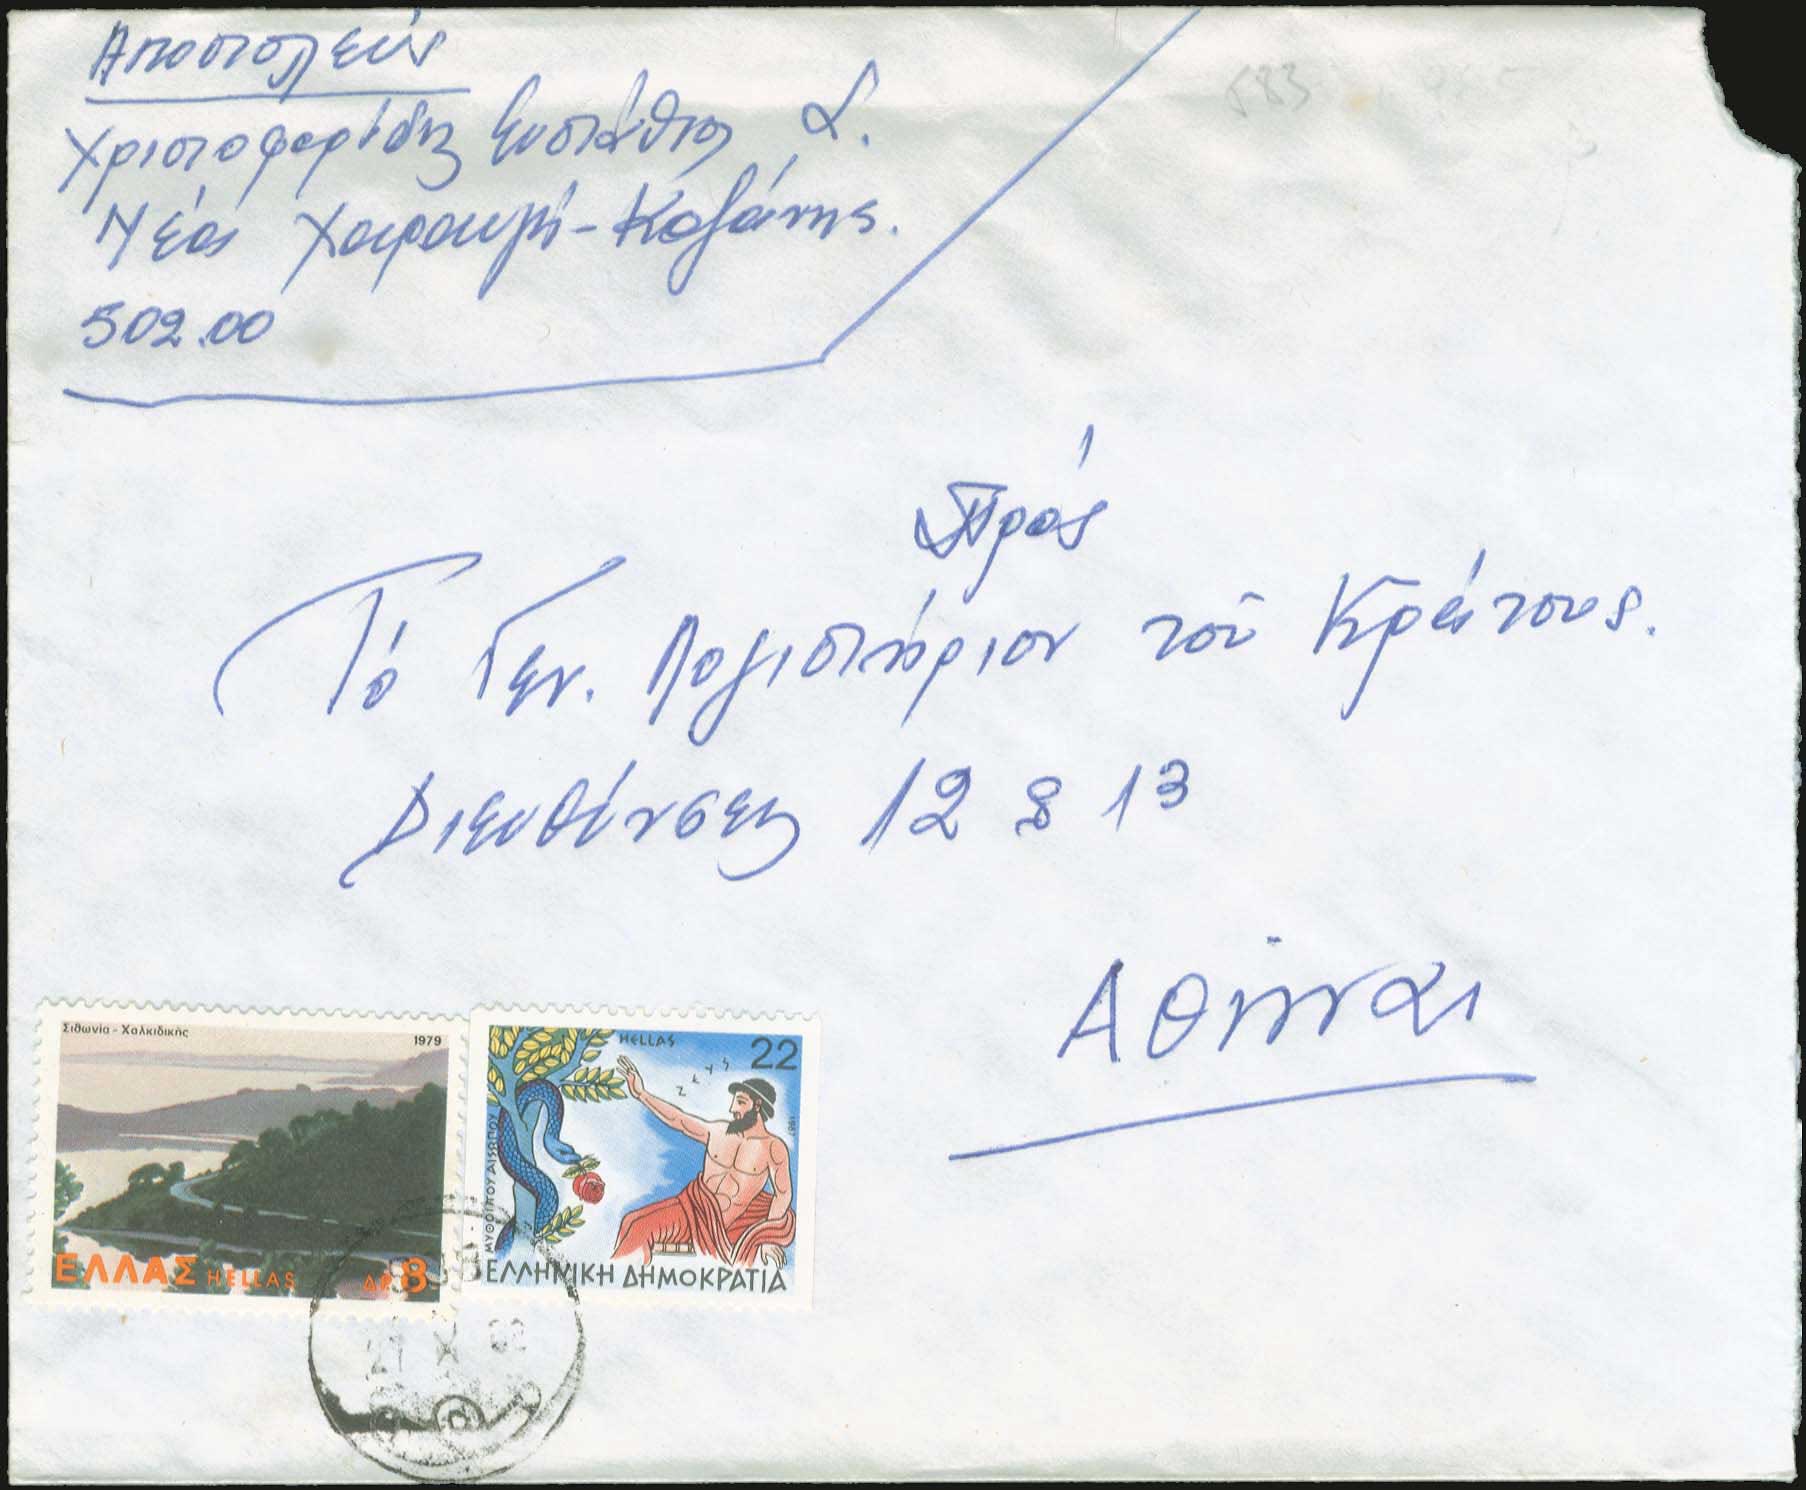 Αποστολεύς
Χριστοφορίδης Ευστάθιος Δ.
Νέα Χαραυγή - Κοζάνης.
502.00
Πρός
Τό Γεν. Λογιστήριον τοῦ Κράτους.
Διευθύνσεις 12 & 13
Αθήναι
Σιθωνία - Χαλκιδικής
1979
ΕΛΛΑΣ HELLAS ΔΡ 8
HELLAS
22
ΖΕΥΣ
1987
ΜΥΘΟΙ ΤΟΥ ΑΙΣΩΠΟΥ
ΕΛΛΗΝΙΚΗ ΔΗΜΟΚΡΑΤΙΑ
21 X